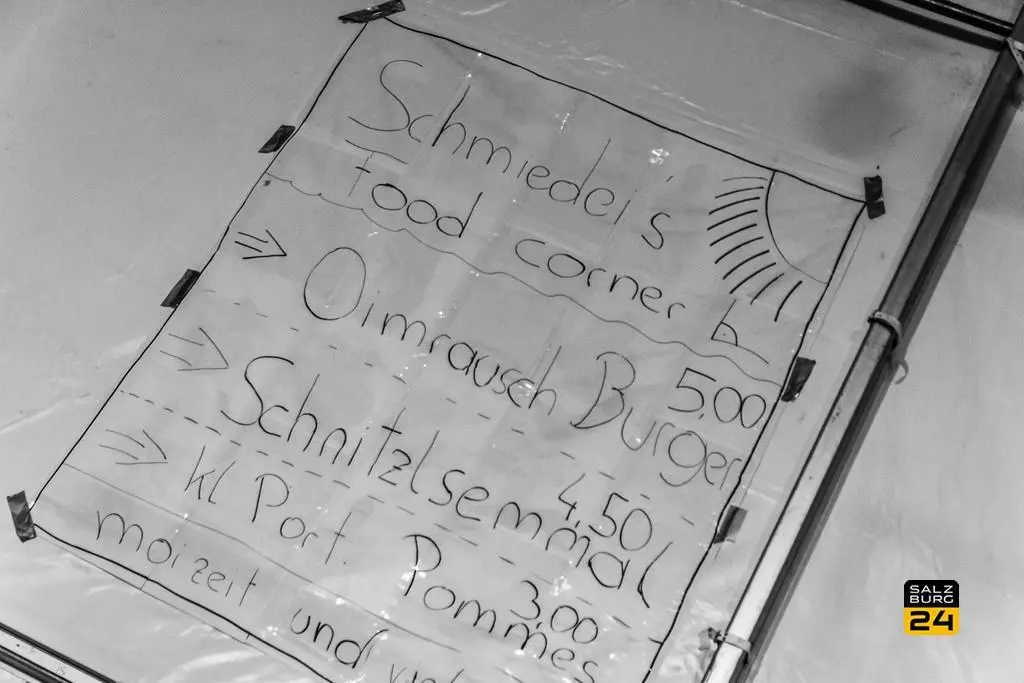 Schmiedei's
food corner
⇒ Oimrausch Burger 5,00
⇒ Schnitzlsemmal 4,50
⇒ kl Port. Pommes 3,00
moizeit und
SALZ
BURG
24